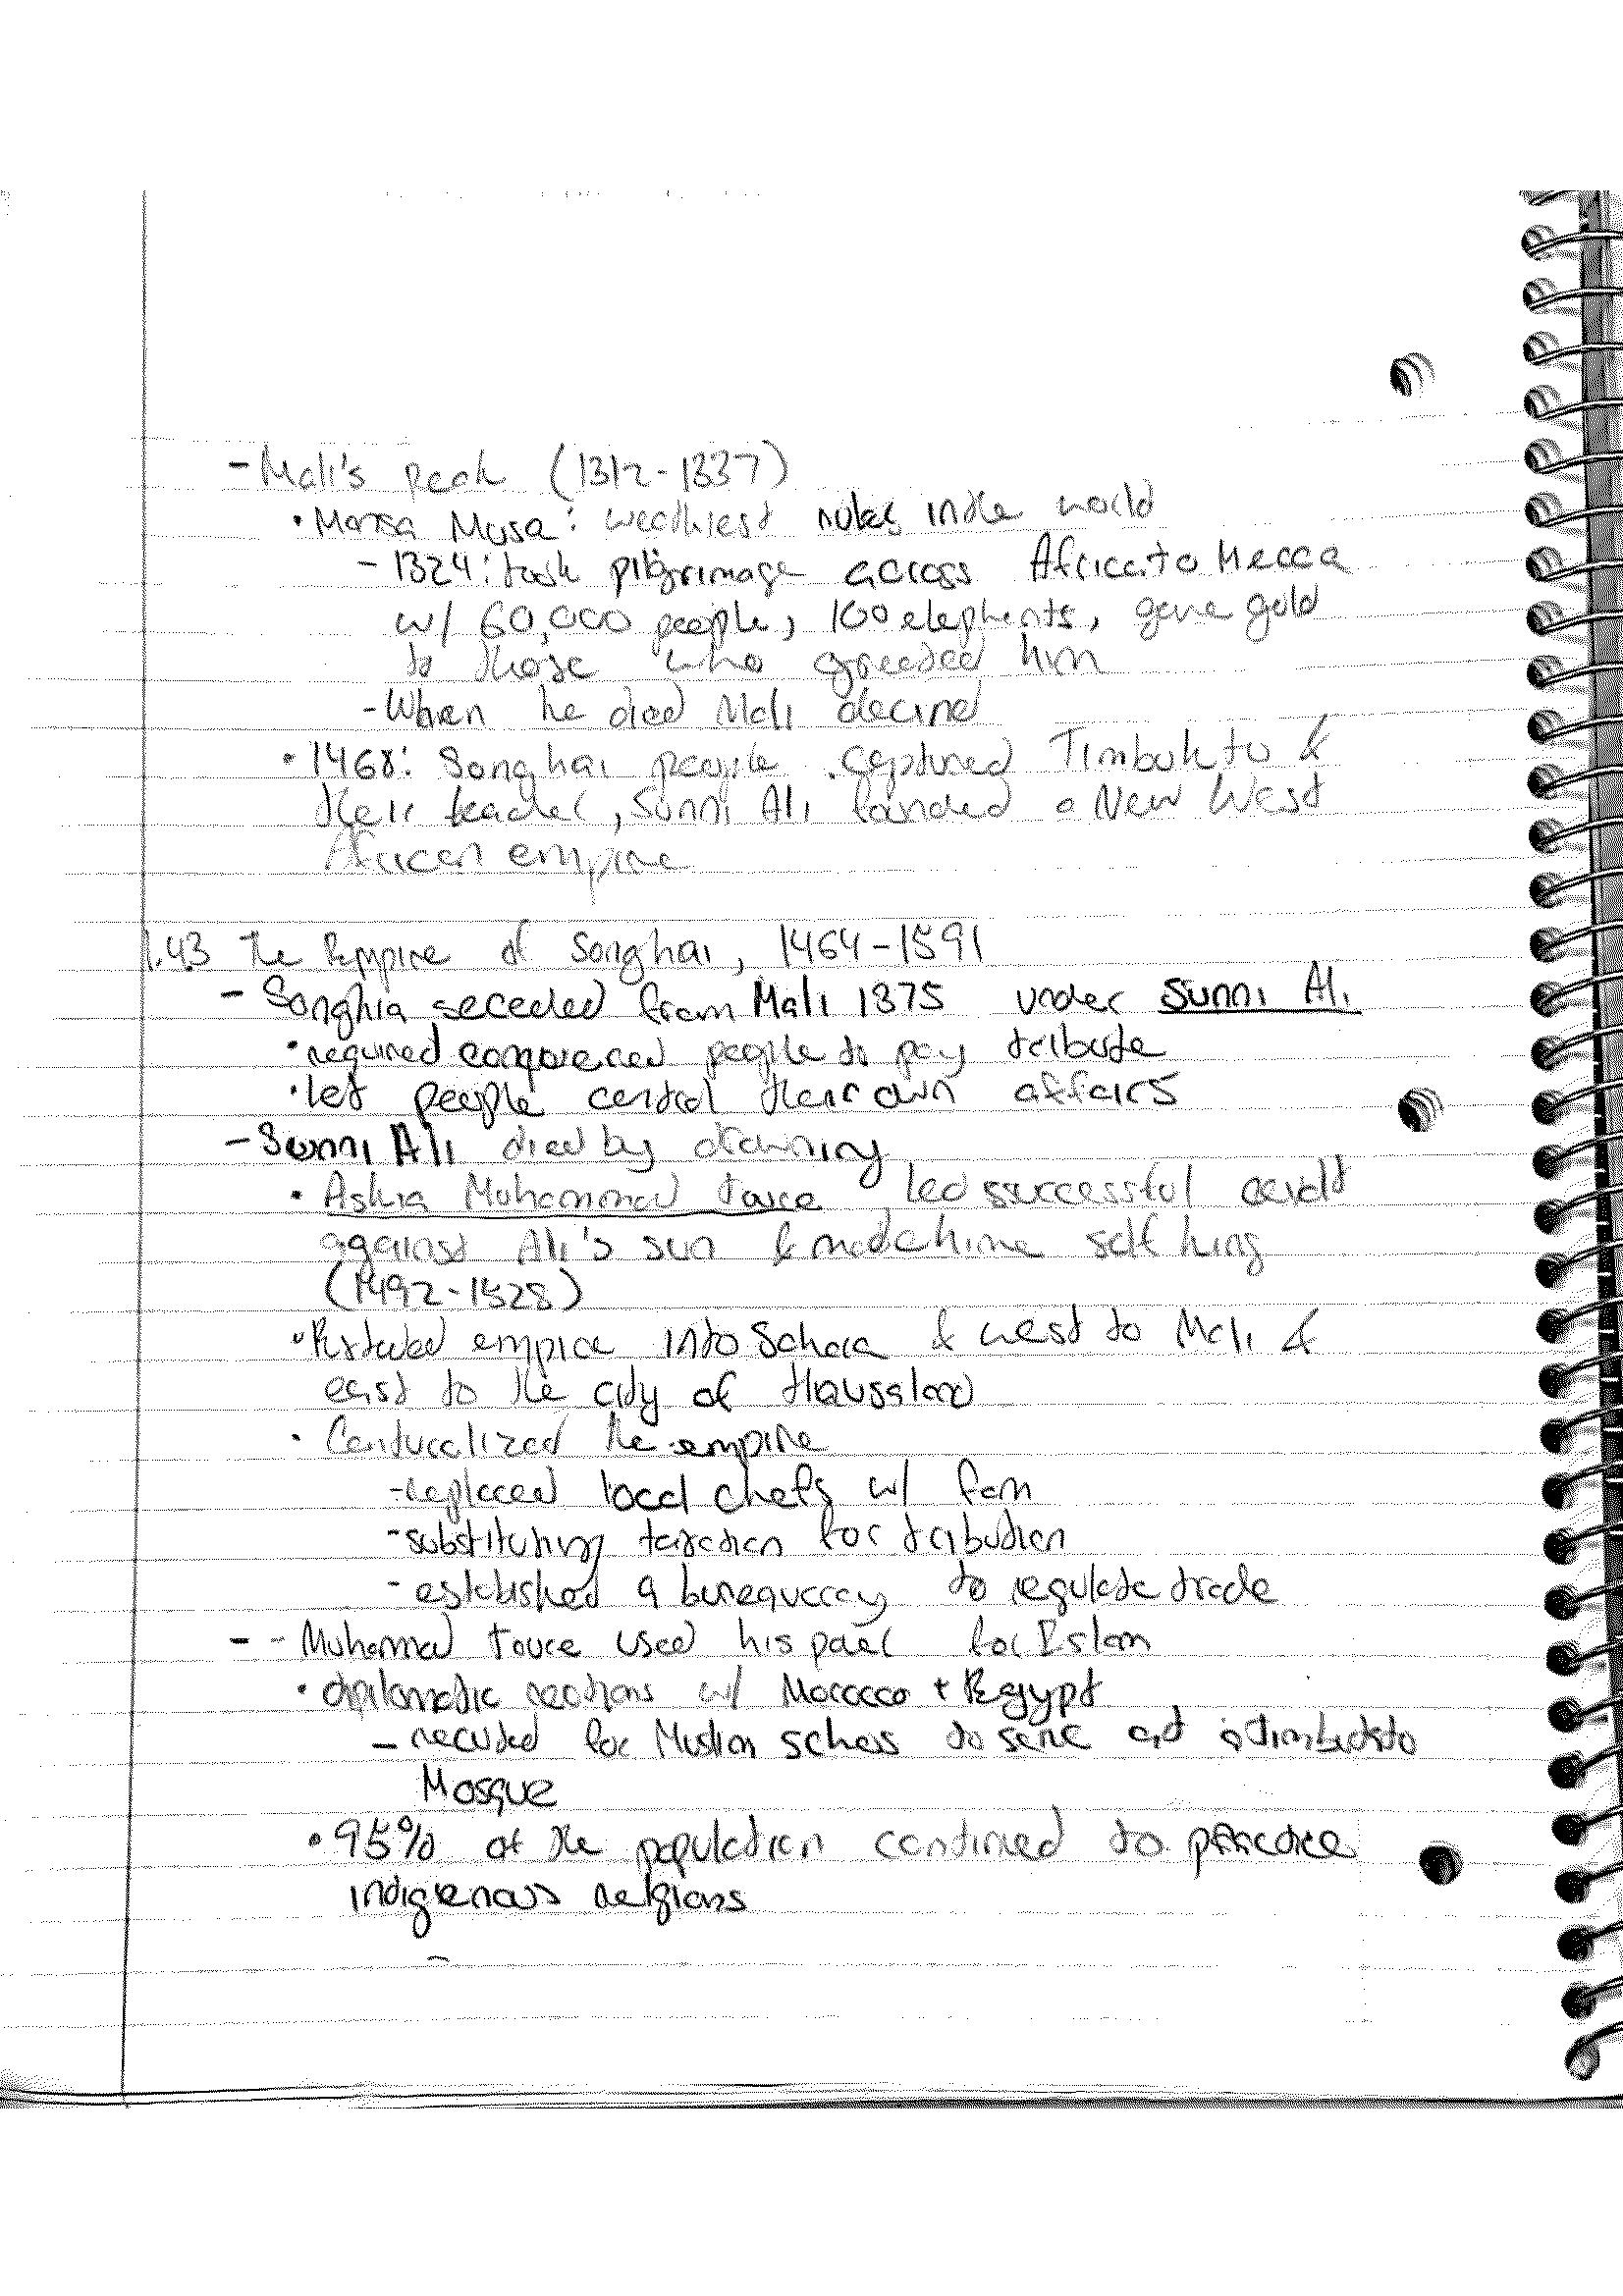 - Mali's peak (1312-1337)
• Mansa Musa: wealthiest ruler in the world
- 1324: took pilgrimage across Africa to Mecca
w/ 60,000 people, 100 elephants, gave gold
to those who greeted him
- When he died Mali decined
• 1468: Songhai people captured Timbuktu &
their leader, Sunni Ali founded a New West
African empire
1.43 The Empire of Songhai, 1464-1591
- Songhia seceded from Mali 1375 under Sunni Ali
• required conquered people to pay tribute
• let people control their own affairs
- Sunni Ali died by drowning
• Askia Muhammad Toure led successful revolt
against Ali's sun & made hime self king
(1492-1528)
• Extended empire into Sahara & west to Mali &
east to the city of Hausaland
• Centuralized the empire
- replaced local chefs w/ fam
- substituting taxation for tribution
- established a bureaucracy to regulate trade
- - Muhammad Toure used his power for Islam
• diplomatic reations w/ Morocco + Egypt
- recuited for Muslim to serve at Timbuckto
Mosque
• 95% of the population continued to practice
indigienous religions